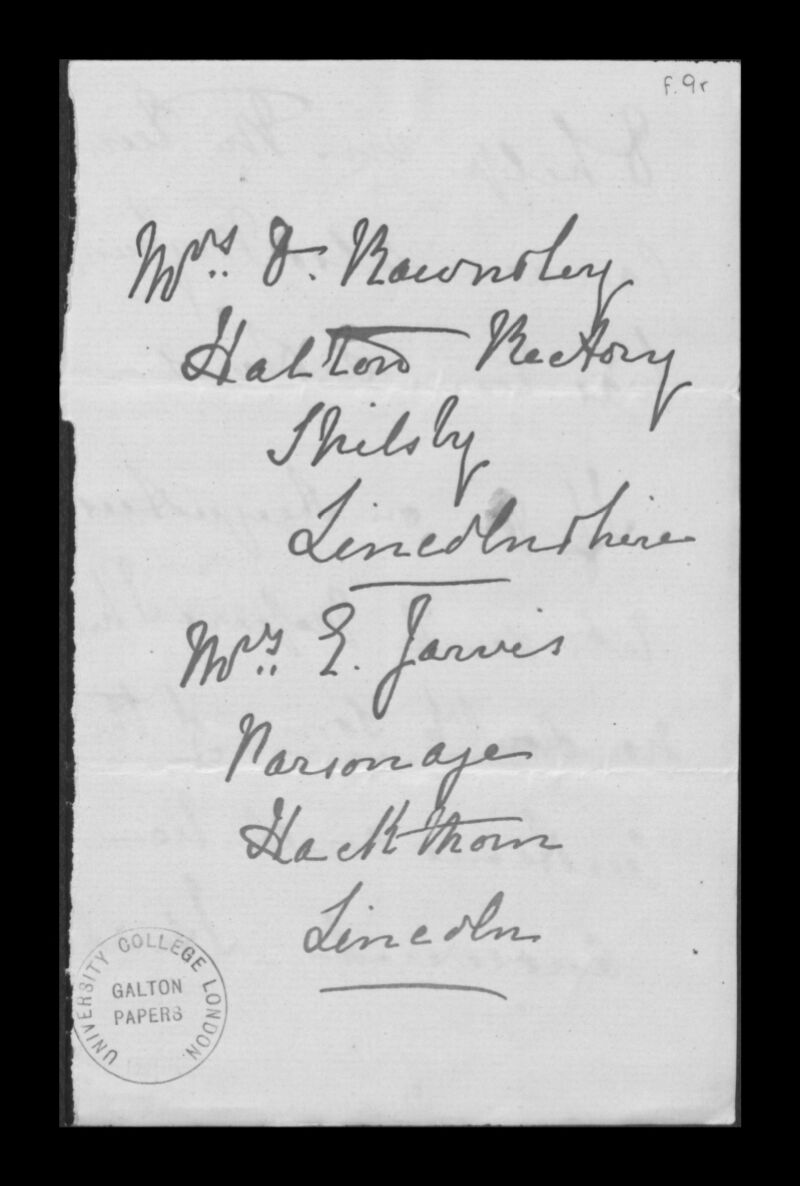 f.9r
Mrs. D. Rawnsley
Halton Rectory
Spilsby
Lincolnshire
Mrs. E. Jarvis
Parsonage
Hackthorn
Lincoln
UNIVERSITY COLLEGE LONDON
GALTON
PAPERS